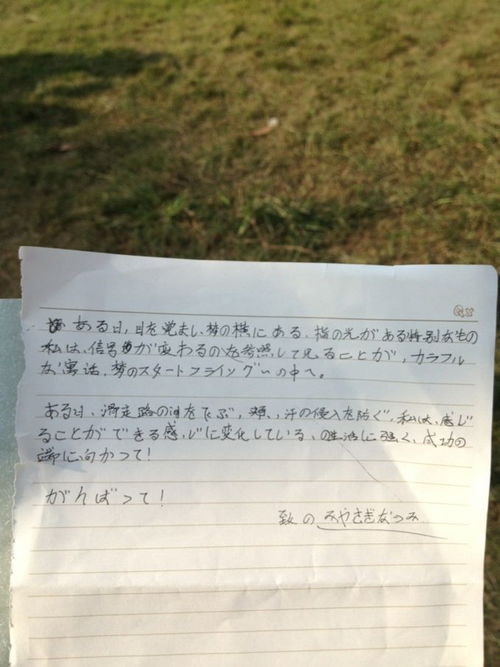 ある日、目を覚まし、夢の横にある、指の光がある特別なもの
私は、信号が変わるのを参照して見ることが、カラフル
な寓話、夢のスタートフライングの中へ。
ある日、滑走路の油をとぶ、頬、汗の侵入を防ぐ、私は、感じ
ることができる感じに変化している、に強く、成功の
に向かって!
がんばって!
致の みやさぎなつみ